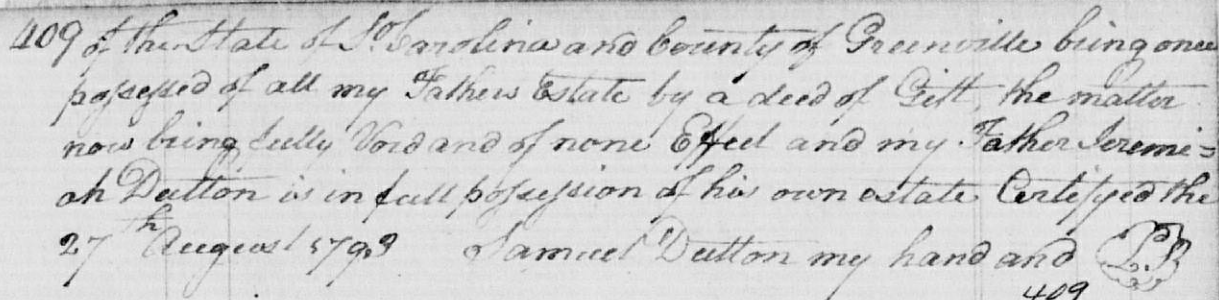 409 of the State of So Carolina and County of Greenville being once
possessed of all my Fathers Estate by a deed of Gift, the matter
now being fully Void and of none Effect and my Father Jeremi=
ah Dutton is in full possession of his own estate Certifyed the
27th August 1793 Samuel Dutton my hand and
409